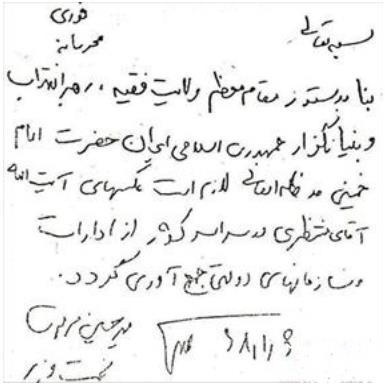 بسمه تعالی
فوری
محرمانه
بنا بدستور مقام معظم ولایت فقیه، رهبر انقلاب
و بنیانگزار جمهوری اسلامی ایران حضرت امام
خمینی مد ظله العالی لازم است عکسهای آیت الله
آقای منتظری در سراسر کشور از ادارات
و سازمانهای دولتی جمع آوری گردد.
میرحسین موسوی
نخست وزیر